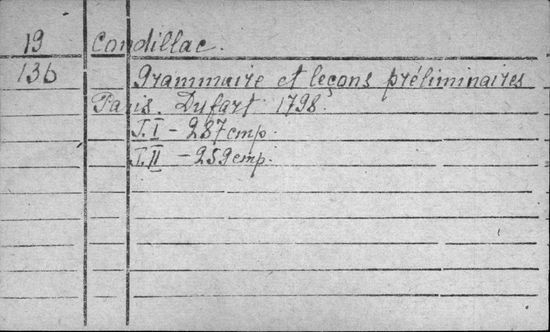 19 Condillac.
13b Grammaire et leçons préliminaires
Paris. Dufart 1798.
T.I - 287 cmp.
T.II - 259 cmp.